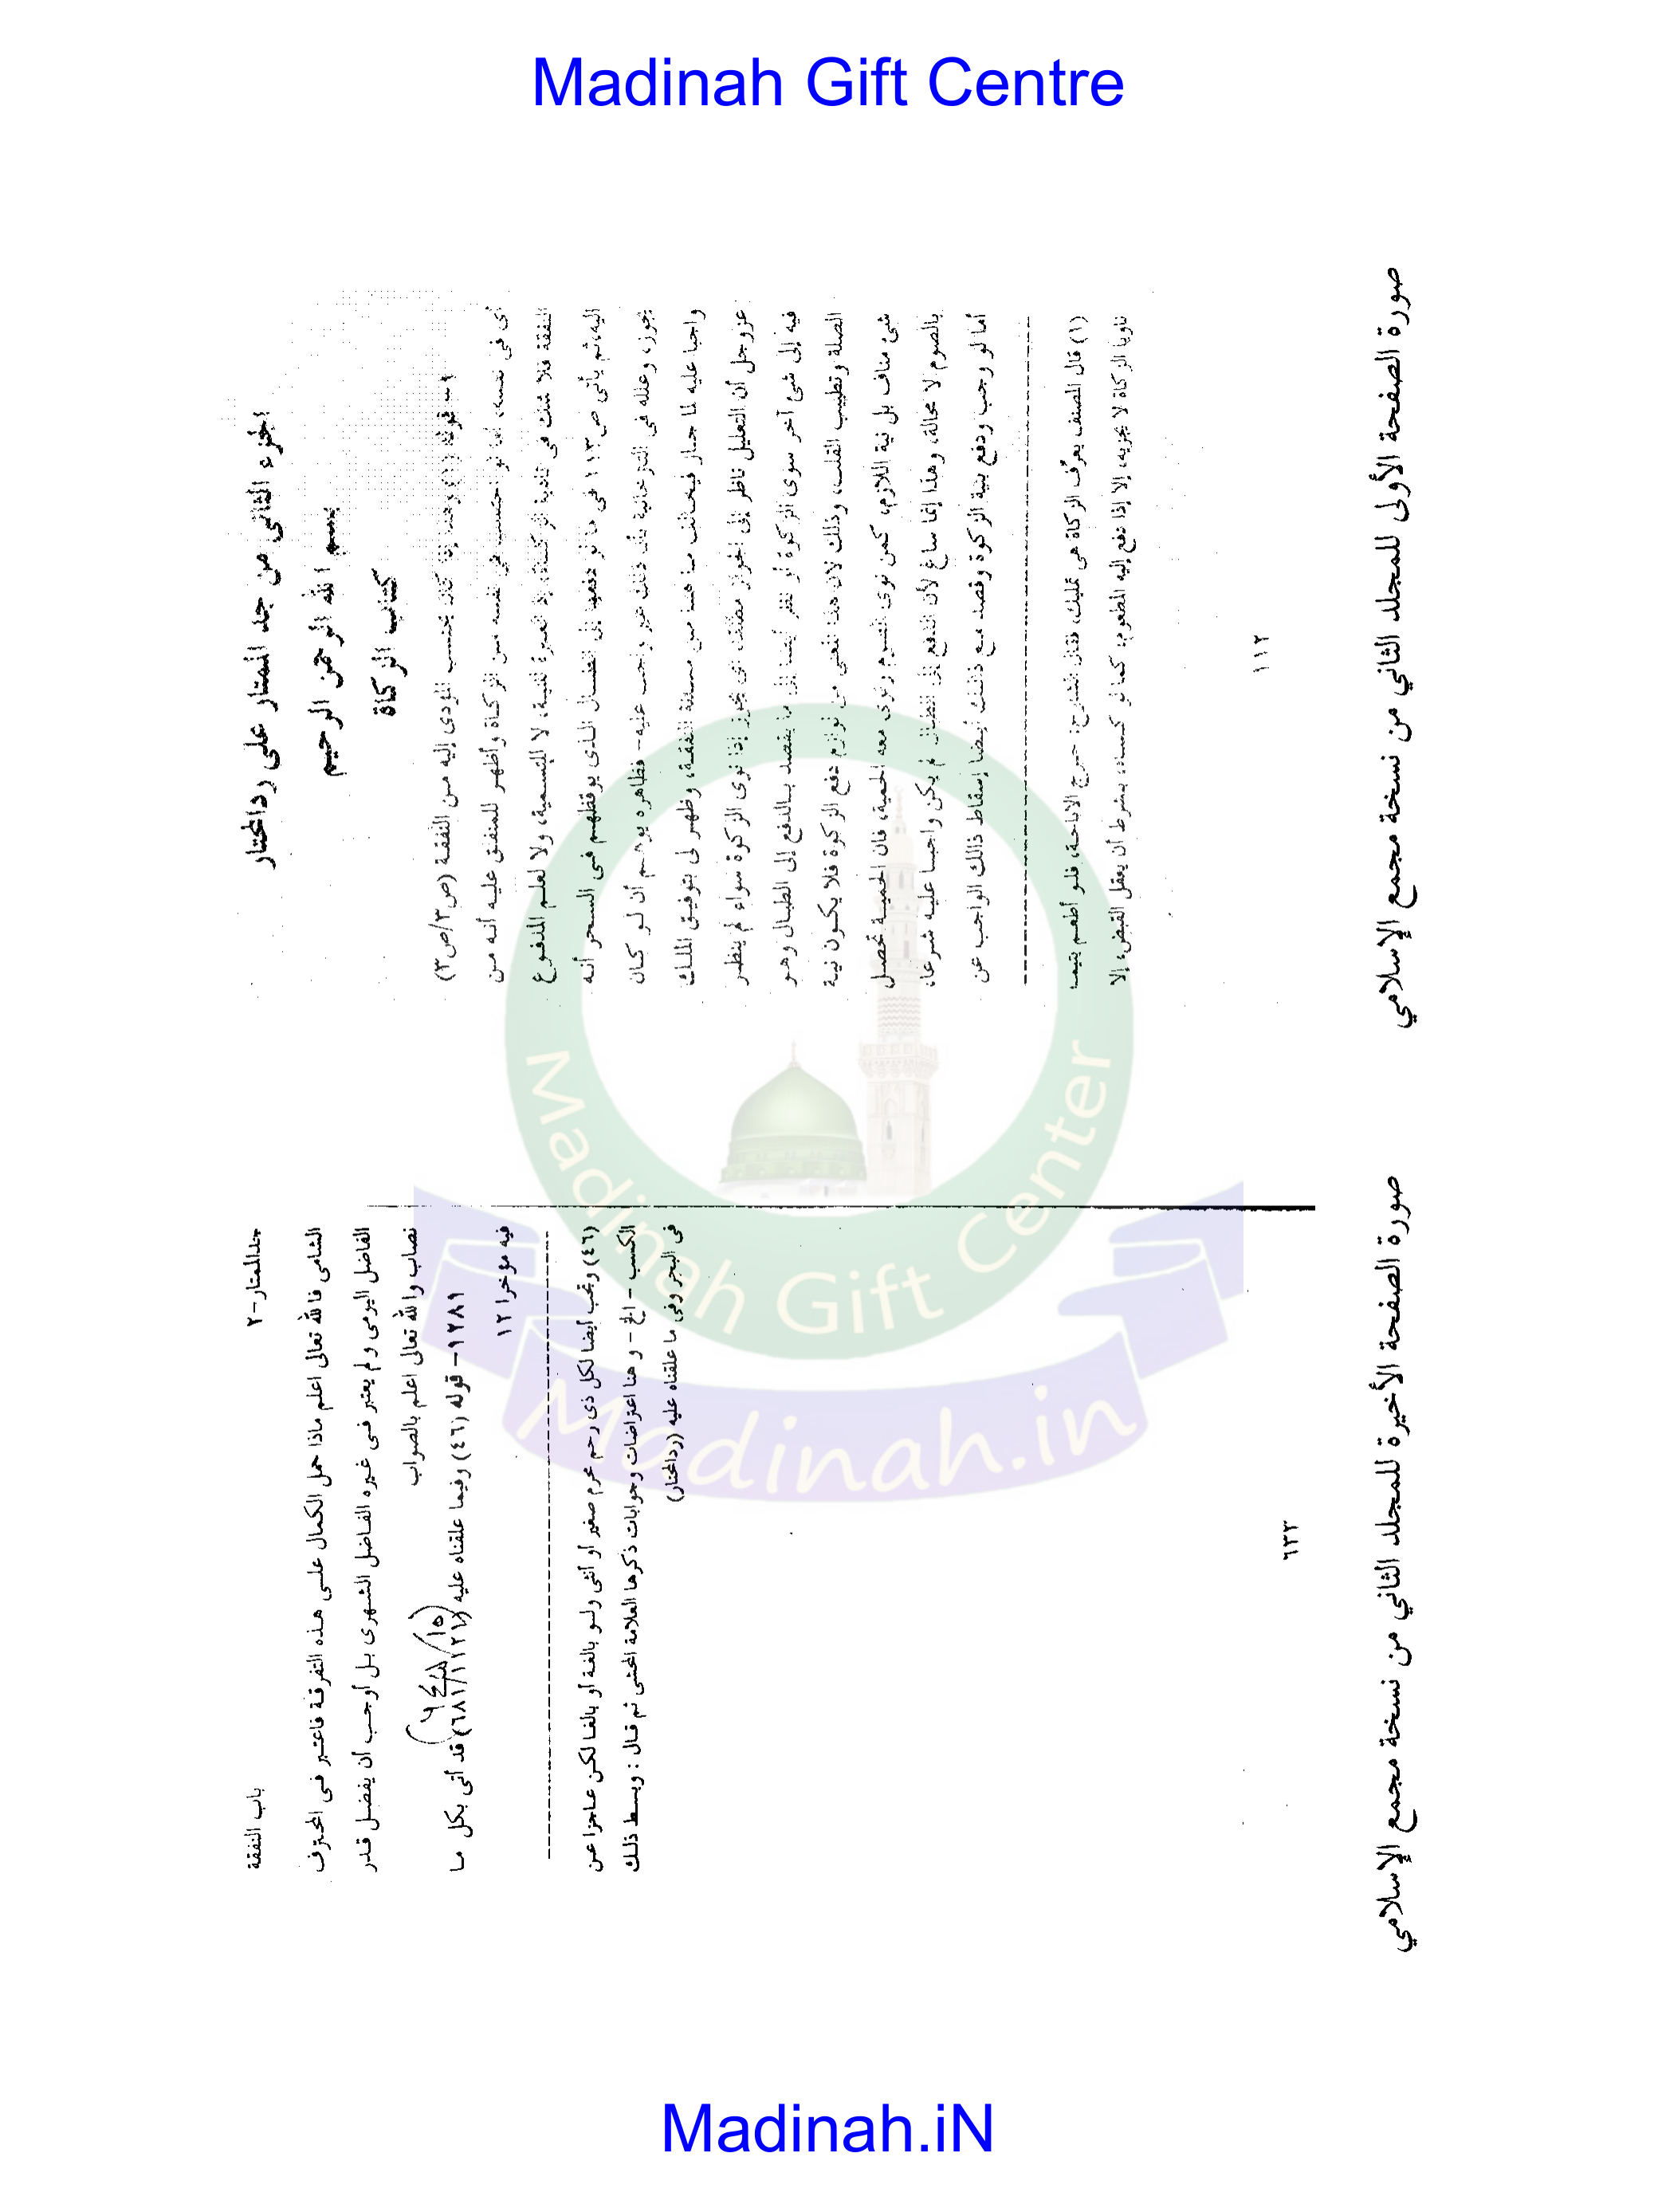 Madinah Gift Centre
الجزء الثاني من جد الممتار على ردالمحتار
بسم الله الرحمن الرحيم
كتاب الزكاة
١ - قوله (١) وهذا إذا كان يحتسب المؤدى إليه من النفقة (ص٢/ص٣)
أى فى نفسه، أما لو احتسب فى نفسه من الزكاة وأظهر للمنفق عليه أنه من
النفقة فلا شك فى تأدية الزكاة، إذ العبرة للنية، لا للتسمية، ولا لعلم المدفوع
اليه، ثم يأتى ص١١٣ فى ما لو دفعها إلى الطبال الذى يوقظهم فى السحر أنه
يجوز، وعلله فى التترخانية بأن ذلك غير واجب عليه - فظاهره يوهم أن لو كان
واجبا عليه لما جاز فيخالف ما هنا من مسئلة النفقة، وظهر لى بتوفيق الملك
عزوجل أن التعليل ناظر إلى الجواز مطلقا أى يجوز إذا نوى الزكوة سواء لم ينظر
فيه إلى شئ آخر سوى الزكوة أو نظر أيضا إلى ما يقصد بالدفع إلى الطبال وهو
الصلة وتطييب القلب، وذلك لان هذا المعنى من لوازم دفع الزكوة فلا يكون نية
شئ مناف بل نية اللازم، كمن نوى الصوم ونوى معه الحمية، فان الحمية تحصل
بالصوم لا محالة، وهذا إنما ساغ لأن الدفع إلى الطبال لم يكن واجبا عليه شرعا،
أما لو وجب ودفع بنية الزكوة وقصد مع ذالك أيضا إسقاط ذالك الواجب عن
(١) قال المصنف يعرّف الزكاة هى تمليك، فقال الشارح: خرج الاباحة، فلو أطعم يتيما
ناويا الزكاة لا يجزيه، إلا إذا دفع إليه المطعوم، كما لو كساه، بشرط أن يعقل القبض، إلا
١١٢
صورة الصفحة الأولى للمجلد الثاني من نسخة مجمع الإسلامي
جدالممتار-٢
باب النفقة
الشامى فالله تعالى اعلم ماذا حمل الكمال على هذه التفرقة فاعتبر فى المحترف
الفاضل اليومى ولم يعتبر فى غيره الفاضل الشهرى بل أوجب أن يفضل قدر
نصاب والله تعالى اعلم بالصواب
١٢٨٩- قوله (٤٦) وفيما علقناه عليه (٦٨١/١١٢١) قد أتى بكل ما
فيه مؤخرا ١٢
(٤٦) وتجب أيضا لكل ذى رحم محرم صغير أو أنثى ولو بالغة أو بالغا لكن عاجزا عن
الكسب - الخ - و هنا اعتراضات وجوابات ذكرها العلامة المحشى ثم قال : وبسط ذلك
فى البحر وفى ما علقناه عليه (ردالمحتار)
٦٣٣
صورة الصفحة الأخيرة للمجلد الثاني من نسخة مجمع الإسلامي
Madinah Gift Center
Madinah.in
Madinah.iN